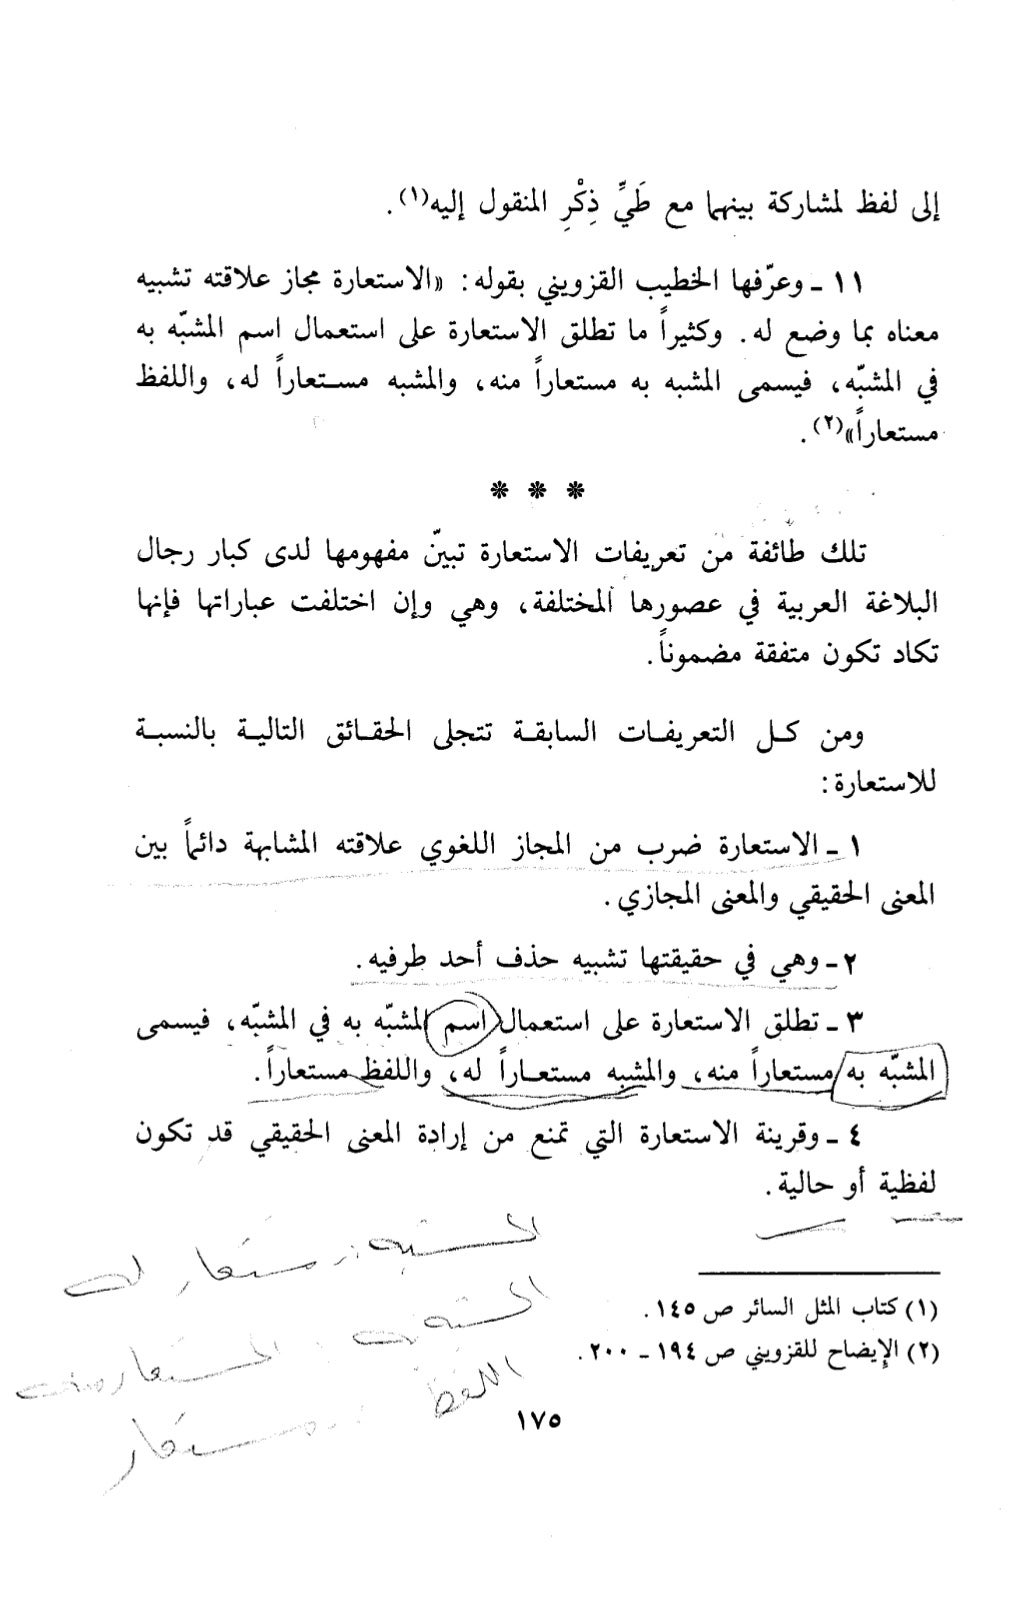 إلى لفظ لمشاركة بينهما مع طَيِّ ذِكْرِ المنقول إليه(١).
١١ ـ وعرّفها الخطيب القزويني بقوله: «الاستعارة مجاز علاقته تشبيه
معناه بما وضع له. وكثيراً ما تطلق الاستعارة على استعمال اسم المشبّه به
في المشبّه، فيسمى المشبه به مستعاراً منه، والمشبه مستعاراً له، واللفظ
مستعاراً»(٢).
* * *
تلك طائفة من تعريفات الاستعارة تبينّ مفهومها لدى كبار رجال
البلاغة العربية في عصورها المختلفة، وهي وإن اختلفت عباراتها فإنها
تكاد تكون متفقة مضموناً.
ومن كل التعريفات السابقة تتجلى الحقائق التالية بالنسبة
للاستعارة:
١ ـ الاستعارة ضرب من المجاز اللغوي علاقته المشابهة دائماً بين
المعنى الحقيقي والمعنى المجازي.
٢ ـ وهي في حقيقتها تشبيه حذف أحد طرفيه.
٣ ـ تطلق الاستعارة على استعمال اسم المشبّه به في المشبّه، فيسمى
المشبّه به مستعاراً منه، والمشبه مستعاراً له، واللفظ مستعاراً.
٤ ـ وقرينة الاستعارة التي تمنع من إرادة المعنى الحقيقي قد تكون
لفظية أو حالية.
المشبه: مستعار له
المشبه به: المستعار منه
اللفظ: مستعار
(١) كتاب المثل السائر ص ١٤٥.
(٢) الإيضاح للقزويني ص ١٩٤ ـ ٢٠٠.
١٧٥